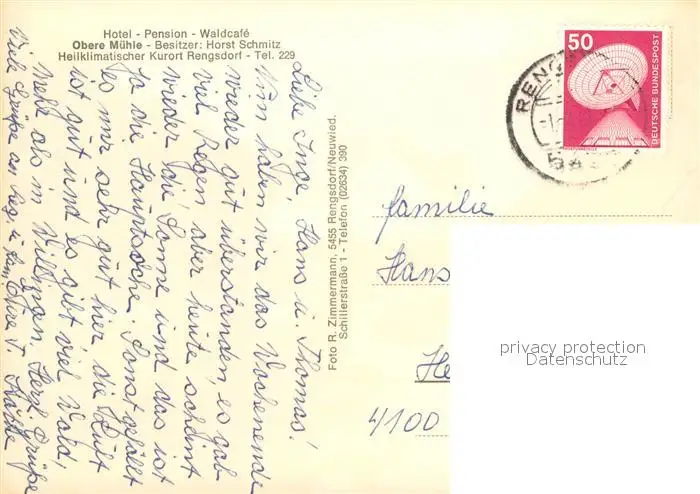 Hotel - Pension - Waldcafé
Obere Mühle - Besitzer: Horst Schmitz
Heilklimatischer Kurort Rengsdorf - Tel. 229
Liebe Inge, Hans u. Thomas!
Nun haben wir das Wochenende
wieder gut überstanden, es gab
viel Regen aber heute scheint
wieder die Sonne und das ist
ja die Hauptsache. Sonst gefällt
es mir sehr gut hier, die Luft
ist gut und es gibt viel Wald,
mehr als in Villingen. Herzl. Grüße
Viele Grüße an
Foto R. Zimmermann, 5455 Rengsdorf/Neuwied.
Schillerstraße 1 - Telefon (02634) 390
50
DEUTSCHE BUNDESPOST
RENG
familie
Hans
He
4100
privacy protection
Datenschutz